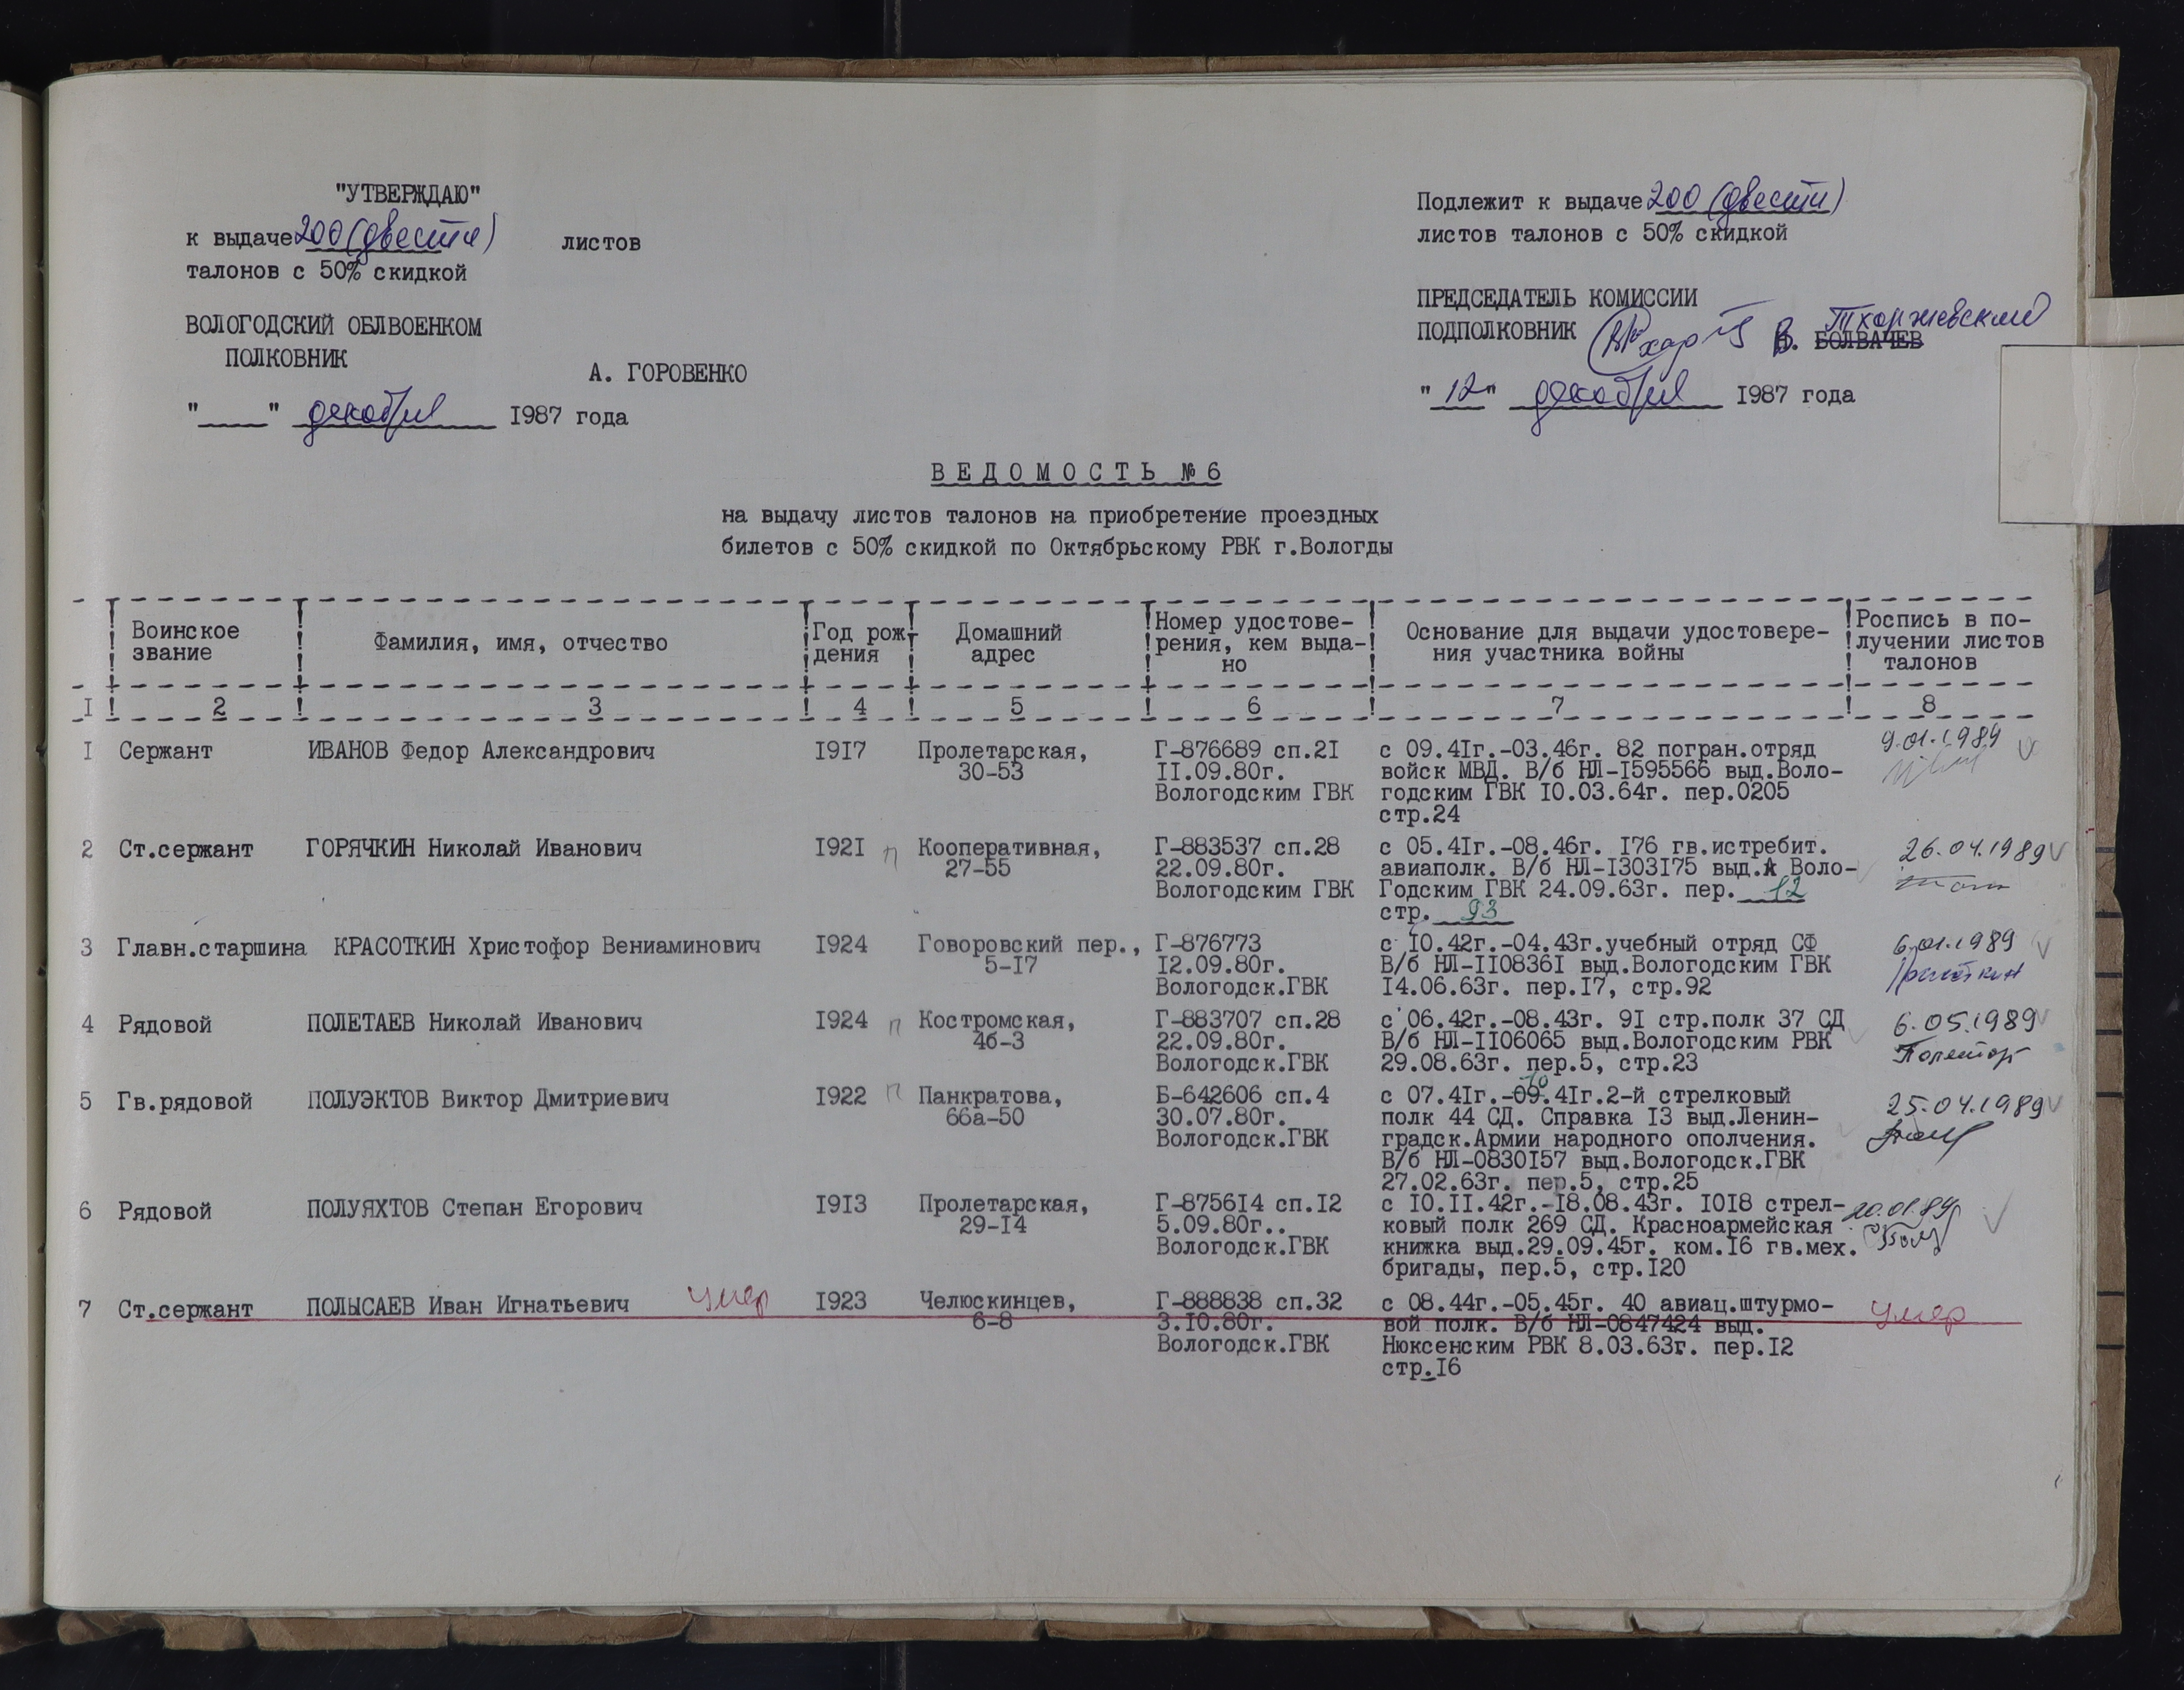 "УТВЕРЖДАЮ"
к выдаче 200 (двести) листов
талонов с 50% скидкой
ВОЛОГОДСКИЙ ОБЛВОЕНКОМ
ПОЛКОВНИК
А. ГОРОВЕНКО
"____" декабря 1987 года
Подлежит к выдаче 200 (двести)
листов талонов с 50% скидкой
ПРЕДСЕДАТЕЛЬ КОМИССИИ
ПОДПОЛКОВНИК В. БОЛВАЧЕВ Тхоржевский
"12" декабря 1987 года
ВЕДОМОСТЬ № 6
на выдачу листов талонов на приобретение проездных
билетов с 50% скидкой по Октябрьскому РВК г.Вологды
Воинское
звание
Фамилия, имя, отчество
Год рож-
дения
Домашний
адрес
Номер удостове-
рения, кем выда-
но
Основание для выдачи удостовере-
ния участника войны
Роспись в по-
лучении листов
талонов
1 2 3 4 5 6 7 8
1 Сержант ИВАНОВ Федор Александрович 1917 Пролетарская, Г-876689 сп.21 с 09.41г.-03.46г. 82 погран.отряд 9.01.1989
30-53 11.09.80г. войск МВД. В/б НЛ-1595566 выд.Воло-
Вологодским ГВК годским ГВК 10.03.64г. пер.0205
стр.24
2 Ст.сержант ГОРЯЧКИН Николай Иванович 1921 п Кооперативная, Г-883537 сп.28 с 05.41г.-08.46г. 176 гв.истребит. 26.04.1989
27-55 22.09.80г. авиаполк. В/б НЛ-1303175 выд. Воло-
Вологодским ГВК Годским ГВК 24.09.63г. пер. 12
стр. 93
3 Главн.старшина КРАСОТКИН Христофор Вениаминович 1924 Говоровский пер., Г-876773 с 10.42г.-04.43г.учебный отряд СФ 6.01.1989
5-17 12.09.80г. В/б НЛ-1108361 выд.Вологодским ГВК
Вологодск.ГВК 14.06.63г. пер.17, стр.92
4 Рядовой ПОЛЕТАЕВ Николай Иванович 1924 п Костромская, Г-883707 сп.28 с 06.42г.-08.43г. 91 стр.полк 37 СД 6.05.1989
4б-3 22.09.80г. В/б НЛ-1106065 выд.Вологодским РВК
Вологодск.ГВК 29.08.63г. пер.5, стр.23
5 Гв.рядовой ПОЛУЭКТОВ Виктор Дмитриевич 1922 п Панкратова, Б-642606 сп.4 с 07.41г.-09.41г.2-й стрелковый 25.04.1989
66а-50 30.07.80г. полк 44 СД. Справка 13 выд.Ленин-
Вологодск.ГВК градск.Армии народного ополчения.
В/б НЛ-0830157 выд.Вологодск.ГВК
27.02.63г. пер.5, стр.25
6 Рядовой ПОЛУЯХТОВ Степан Егорович 1913 Пролетарская, Г-875614 сп.12 с 10.11.42г.-18.08.43г. 1018 стрел- 20.01.89
29-14 5.09.80г.. ковый полк 269 СД. Красноармейская
Вологодск.ГВК книжка выд.29.09.45г. ком.16 гв.мех.
бригады, пер.5, стр.120
7 Ст.сержант ПОЛЫСАЕВ Иван Игнатьевич умер 1923 Челюскинцев, Г-888838 сп.32 с 08.44г.-05.45г. 40 авиац.штурмо- умер
6-8 3.10.80г. вой полк. В/б НЛ-0847424 выд.
Вологодск.ГВК Нюксенским РВК 8.03.63г. пер.12
стр.16